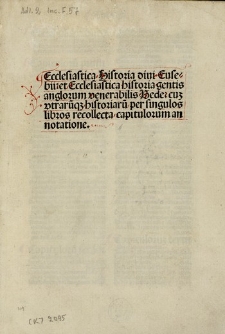 Adl. 2. Inc. S. 57
Ecclesiastica Historia diui Euse⸗
bii et Ecclesiastica historia gentis
anglorum venerabilis Bede: cuz
vtrarūqꝫ historiarū per singulos
libros recollecta capitulorum an
notatione.
CKJ 2095